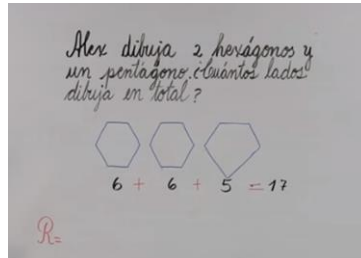 Alex dibuja 2 hexágonos y
un pentágono. ¿Cuántos lados
dibuja en total?
6 + 6 + 5 = 17
R=